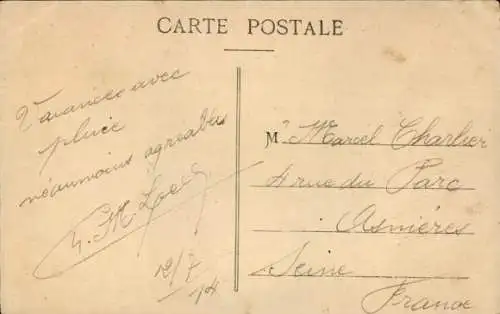 CARTE POSTALE
Vacances avec
pluie
néanmoins agréables
G. M.
12/7
14
Mr Marcel Charlier
4 rue du Parc
Asnières
Seine
France